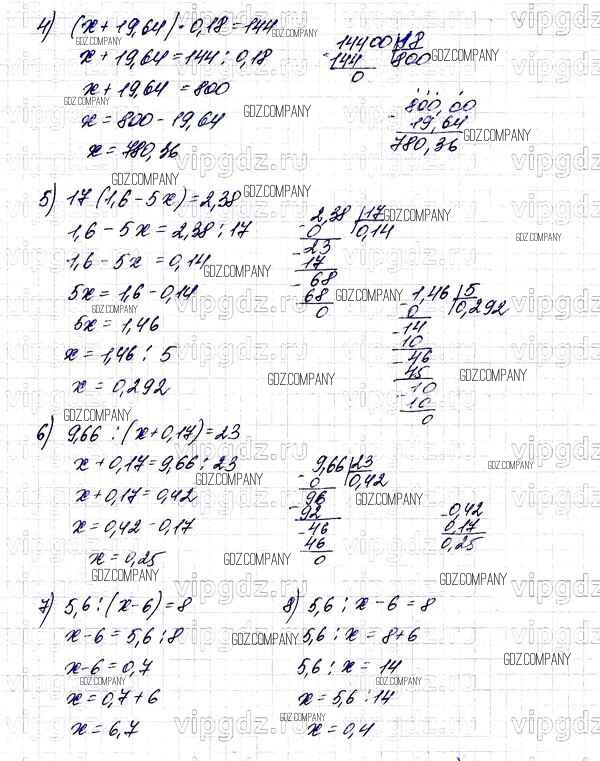 4) (x + 19,64) · 0,18 = 144
x + 19,64 = 144 : 0,18
x + 19,64 = 800
x = 800 - 19,64
x = 780,36
14400 | 18
- 144 | 800
0
800,00
- 19,64
780,36
5) 17 (1,6 - 5x) = 2,38
1,6 - 5x = 2,38 : 17
1,6 - 5x = 0,14
5x = 1,6 - 0,14
5x = 1,46
x = 1,46 : 5
x = 0,292
- 2,38 | 17
0 | 0,14
- 23
17
- 68
68
0
- 1,46 | 5
0 | 0,292
- 14
10
- 46
45
- 10
10
0
6) 9,66 : (x + 0,17) = 23
x + 0,17 = 9,66 : 23
x + 0,17 = 0,42
x = 0,42 - 0,17
x = 0,25
- 9,66 | 23
0 | 0,42
- 96
92
- 46
46
0
- 0,42
0,17
0,25
7) 5,6 : (x - 6) = 8
x - 6 = 5,6 : 8
x - 6 = 0,7
x = 0,7 + 6
x = 6,7
8) 5,6 : x - 6 = 8
5,6 : x = 8 + 6
5,6 : x = 14
x = 5,6 : 14
x = 0,4
GDZ.COMPANY
vipgdz.ru